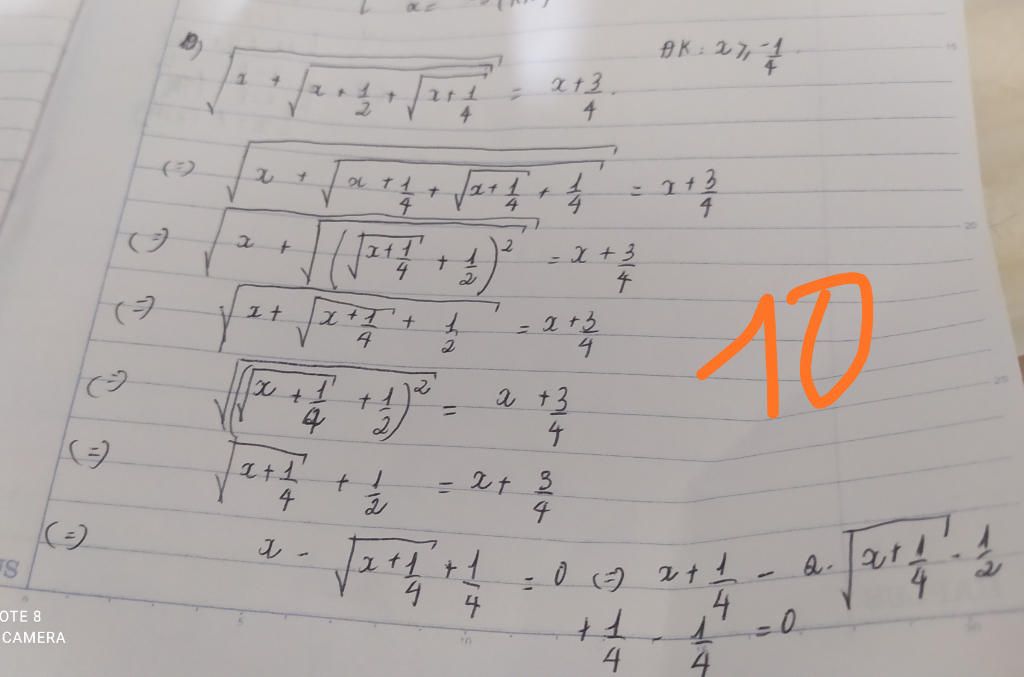 x + √(x + 1/2 + √(x + 1/4)) = x + 3/4. ĐK: x ≥ -1/4.
(=) √(x + √(x + 1/4 + √(x + 1/4) + 1/4)) = x + 3/4
(=) √(x + √((√(x + 1/4) + 1/2)²)) = x + 3/4
(=) √(x + √(x + 1/4) + 1/2) = x + 3/4
10
(=) √((√(x + 1/4) + 1/2)²) = x + 3/4
(=) √(x + 1/4) + 1/2 = x + 3/4
(=) x - √(x + 1/4) + 1/4 = 0 (=) x + 1/4 - 2. √(x + 1/4) . 1/2
+ 1/4 - 1/4 = 0
OTE 8
CAMERA